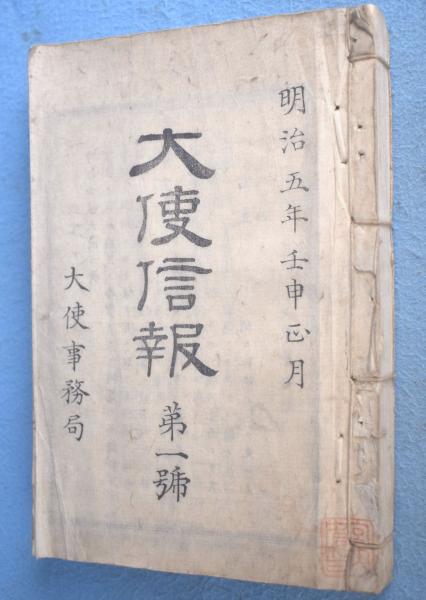 明治五年壬申正月
大使信報
第一號
大使事務局